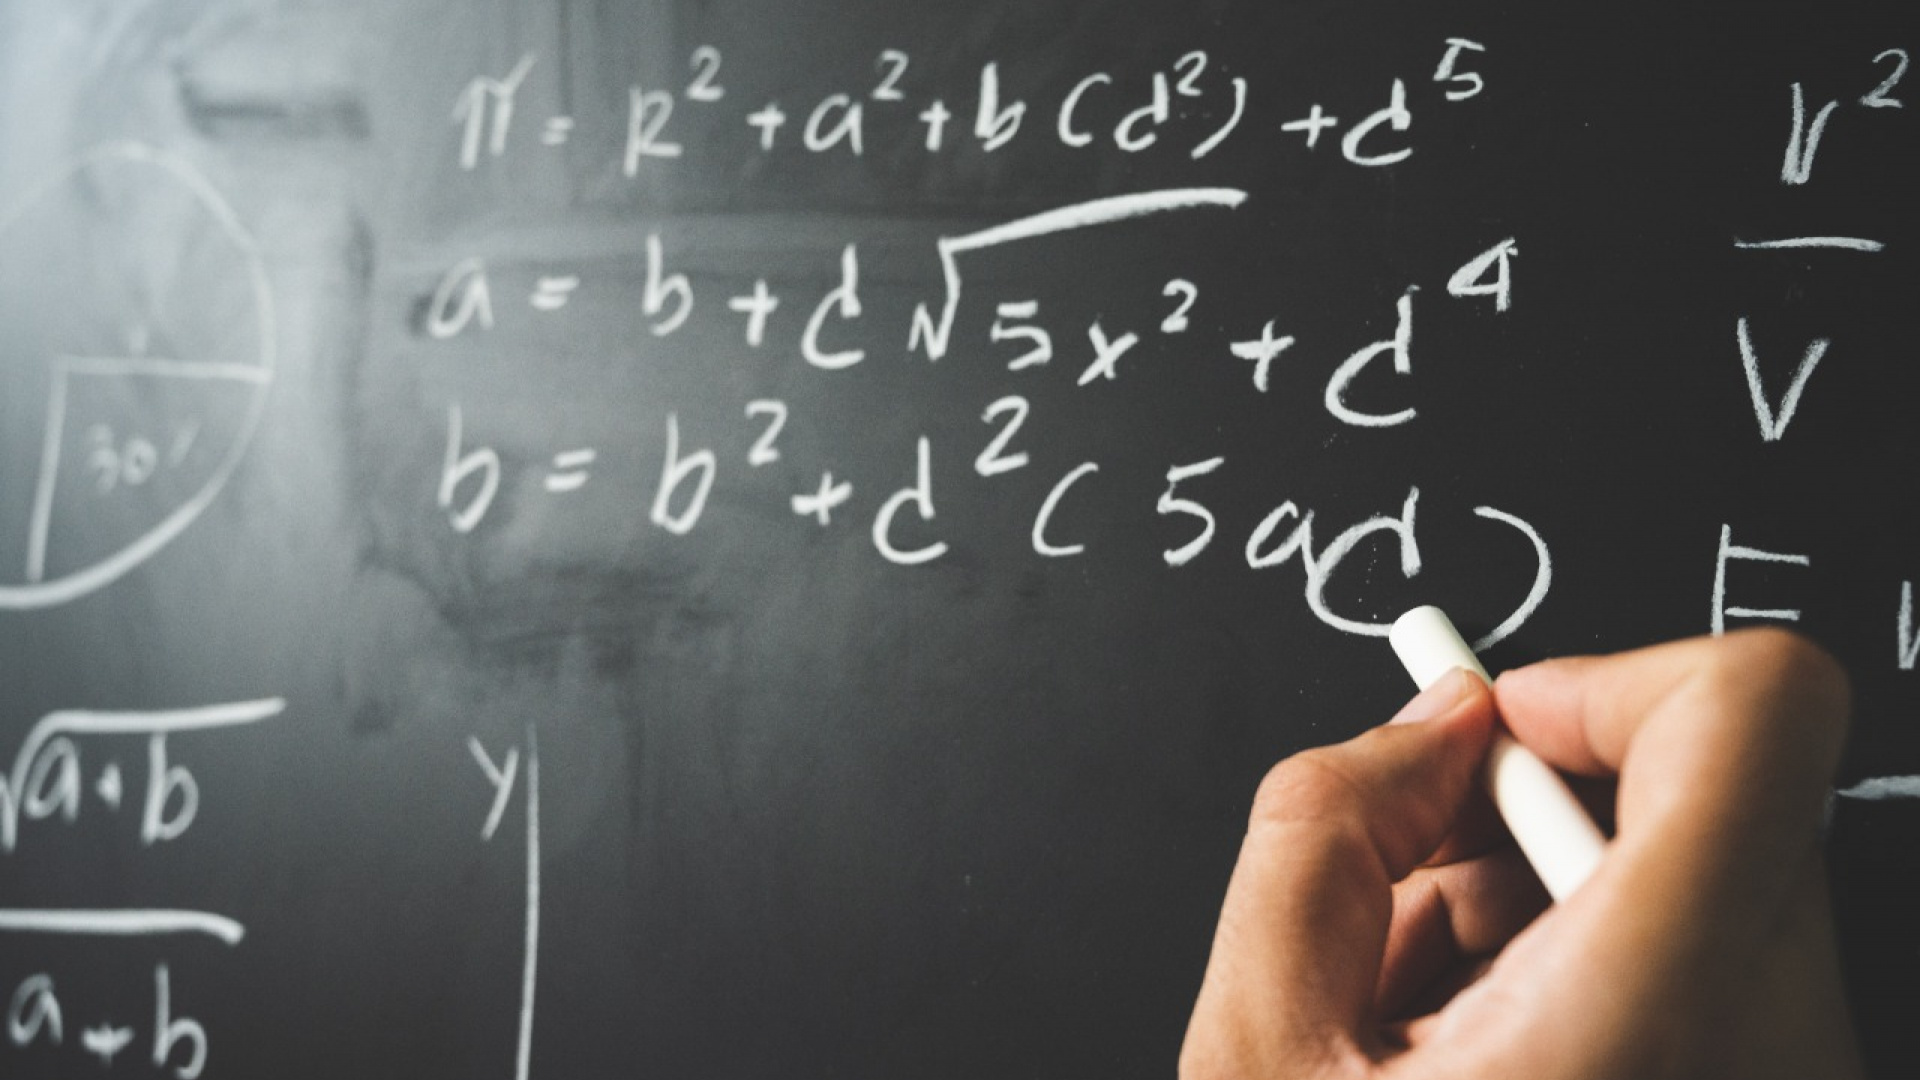 π = R² + a² + b (d²) + d⁵
a = b + d √5x² + d⁴
b = b² + d² ( 5ad )
30°
√a · b
a + b
y
V²
V
E